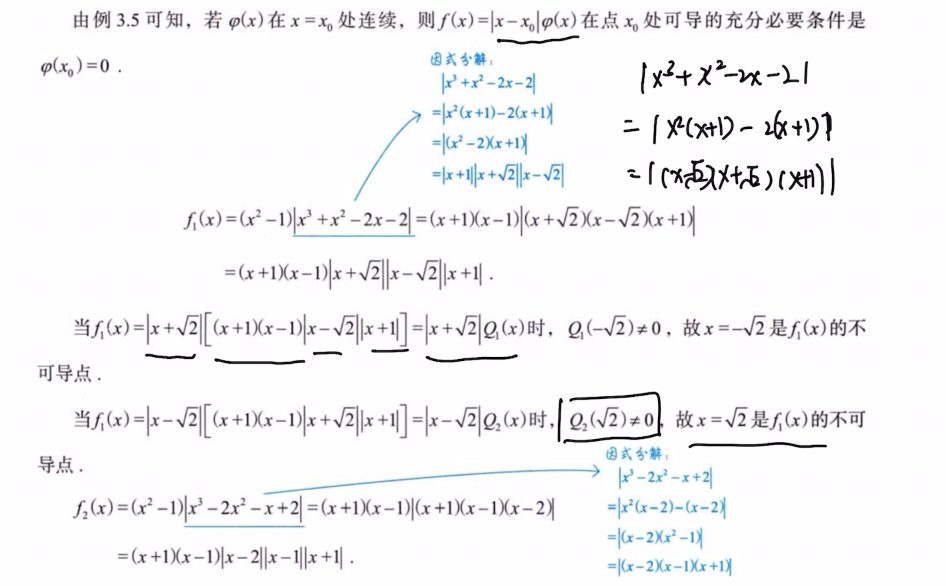 由例 3.5 可知，若 φ(x) 在 x = x₀ 处连续，则 f(x)=|x−x₀|φ(x) 在点 x₀ 处可导的充分必要条件是
φ(x₀)=0．
因式分解：
|x³+x²−2x−2|
=|x²(x+1)−2(x+1)|
=|(x²−2)(x+1)|
=|x+1||x+√2||x−√2|
|x³+x²−2x−2|
=|x²(x+1)−2(x+1)|
=|(x−√2)(x+√2)(x+1)|
f₁(x)=(x²−1)|x³+x²−2x−2|=(x+1)(x−1)|(x+√2)(x−√2)(x+1)|
=(x+1)(x−1)|x+√2||x−√2||x+1|．
当 f₁(x)=|x+√2|[(x+1)(x−1)|x−√2||x+1|]=|x+√2|Q₁(x) 时，Q₁(−√2)≠0，故 x=−√2 是 f₁(x) 的不
可导点．
当 f₁(x)=|x−√2|[(x+1)(x−1)|x+√2||x+1|]=|x−√2|Q₂(x) 时，Q₂(√2)≠0，故 x=√2 是 f₁(x) 的不可
导点．
因式分解：
|x³−2x²−x+2|
=|x²(x−2)−(x−2)|
=|(x−2)(x²−1)|
=|(x−2)(x−1)(x+1)|
f₂(x)=(x²−1)|x³−2x²−x+2|=(x+1)(x−1)|(x+1)(x−1)(x−2)|
=(x+1)(x−1)|x−2||x−1||x+1|．